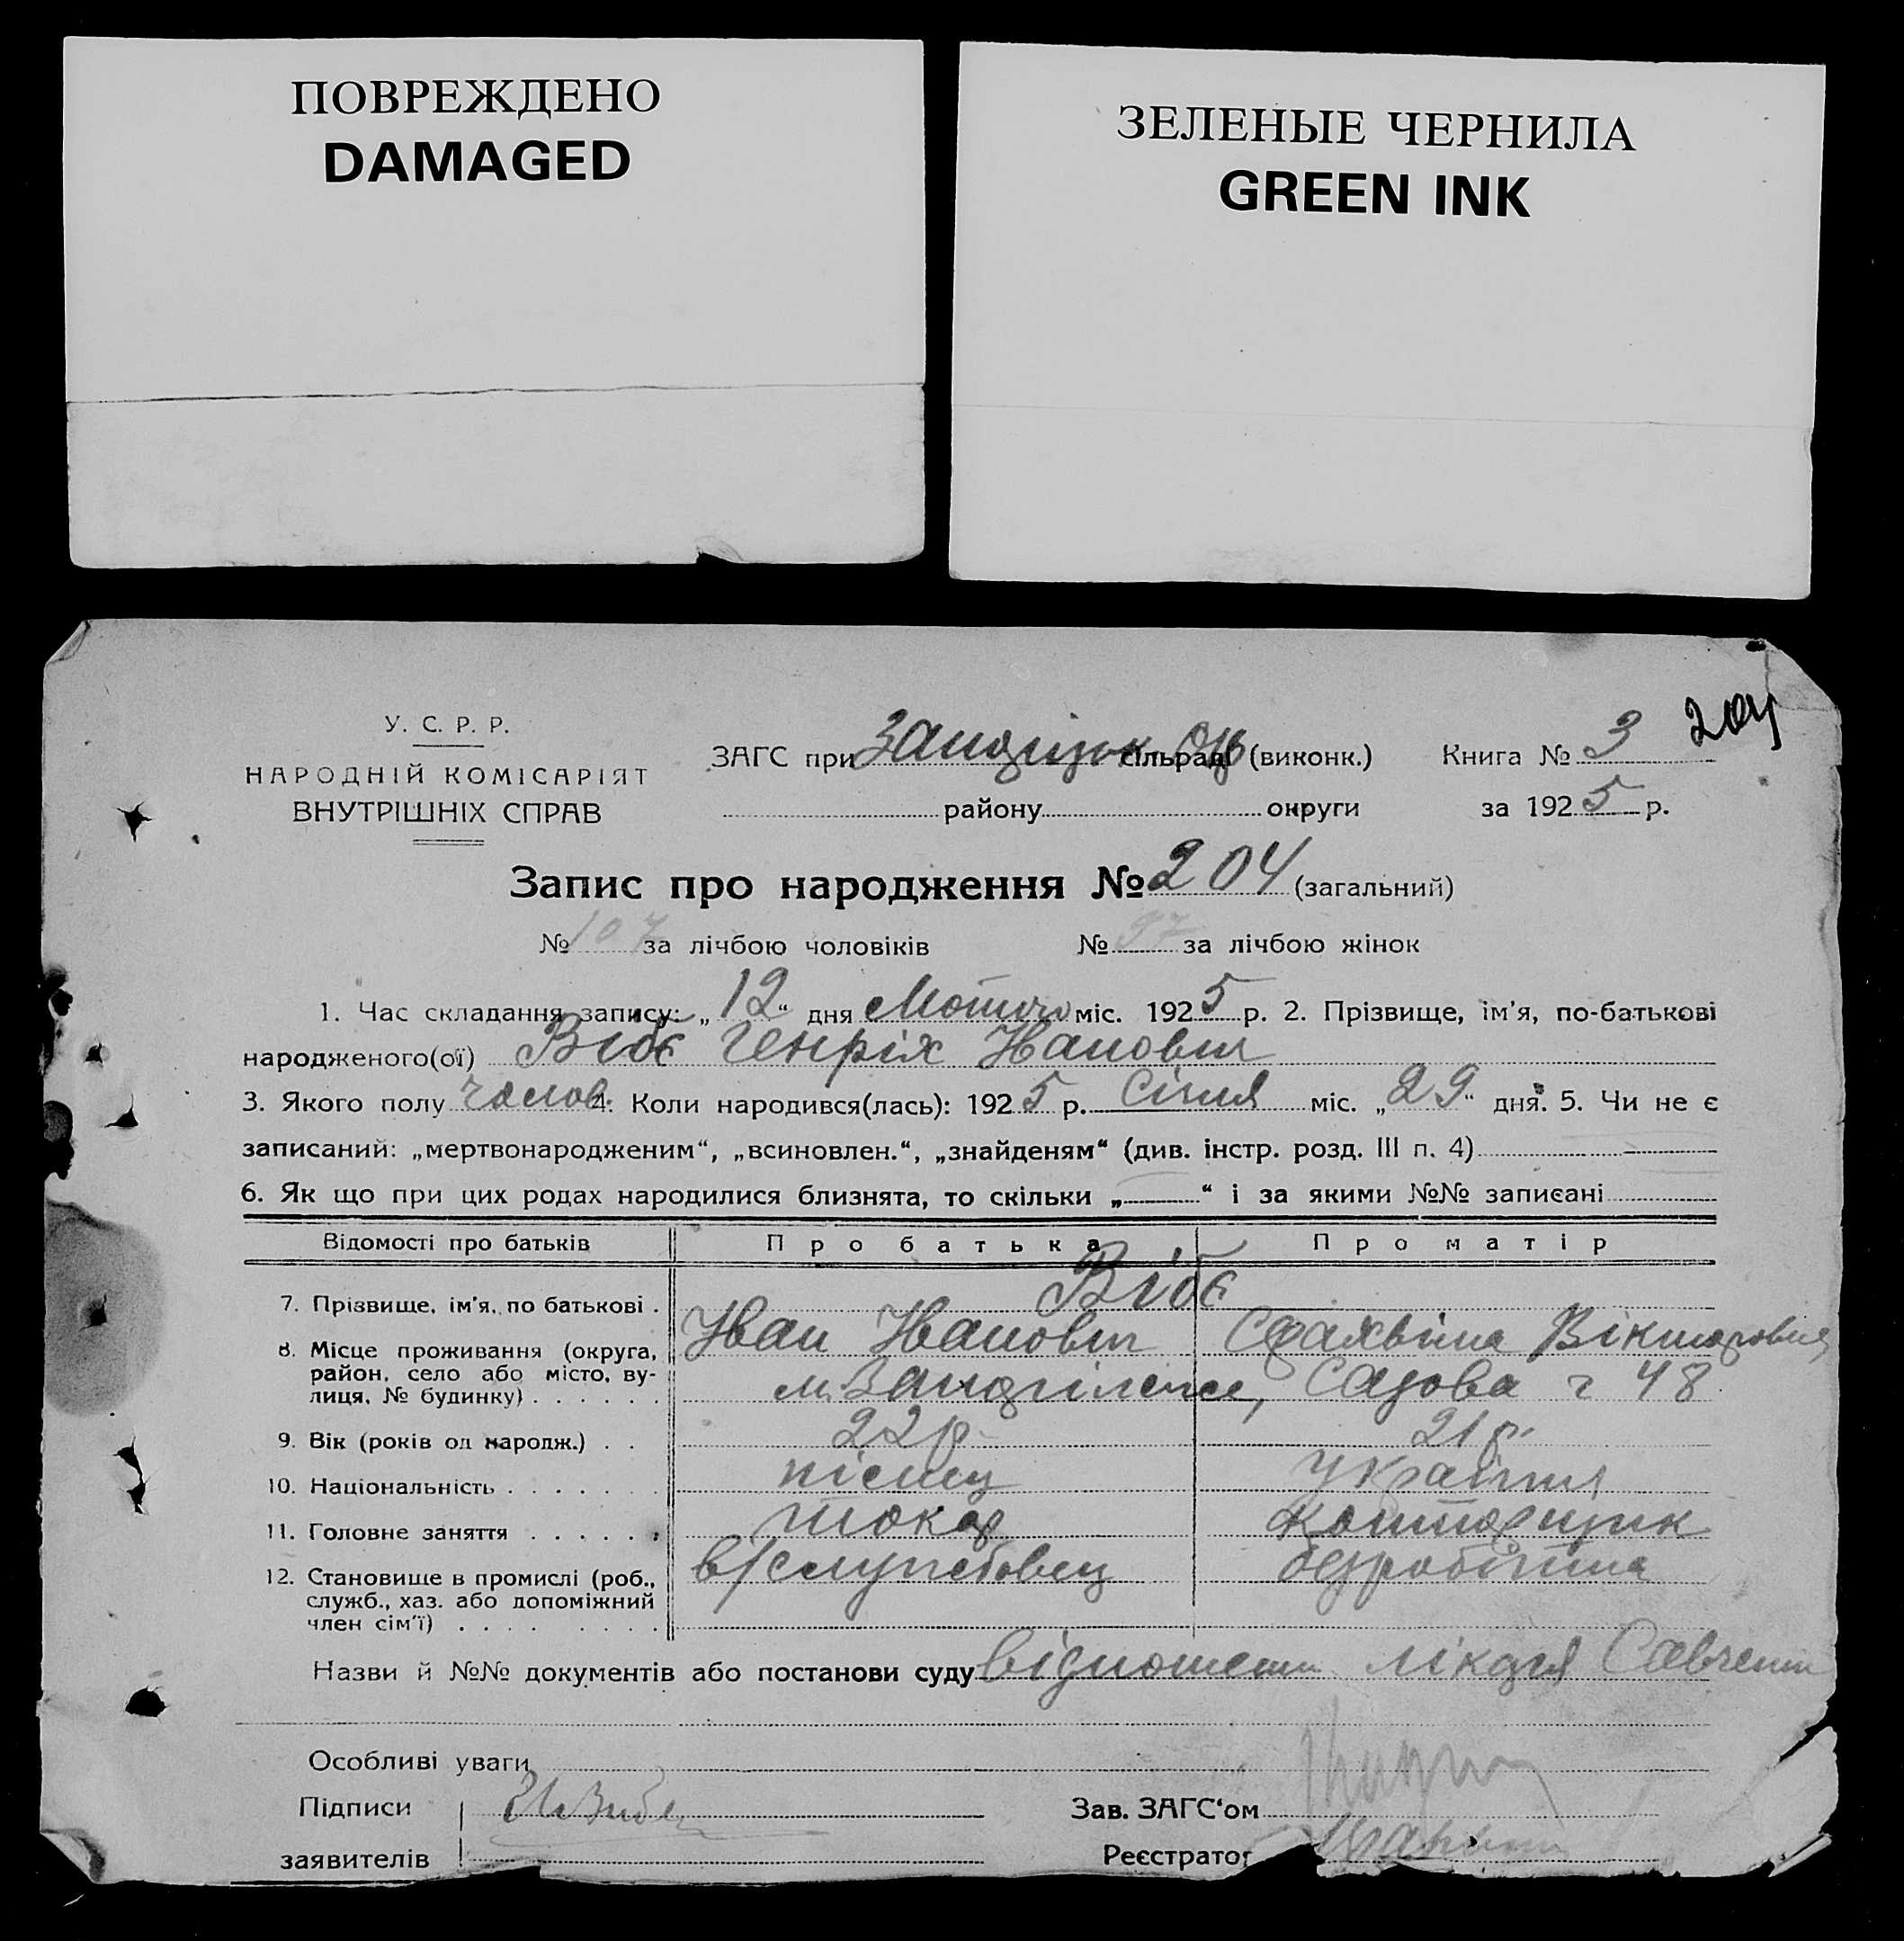 ПОВРЕЖДЕНО
DAMAGED
ЗЕЛЕНЫЕ ЧЕРНИЛА
GREEN INK
204
У. С. Р. Р.
НАРОДНІЙ КОМІСАРІЯТ
ВНУТРІШНІХ СПРАВ
ЗАГС при сільраді (виконк.) Книга № 3
району округи за 1925 р.
Запис про народження № 204 (загальний)
№ 107 за лічбою чоловіків № 97 за лічбою жінок
1. Час складання запису: „12“ дня Лютого міс. 1925 р. 2. Прізвище, ім'я, по-батькові
народженого(ої) Вібє Генріх Іванович
3. Якого полу чолов. 4. Коли народився(лась): 1925 р. Січня міс. „29“ дня. 5. Чи не є
записаний: „мертвонародженим“, „всиновлен.“, „знайденям“ (див. інстр. розд. III п. 4)
6. Як що при цих родах народилися близнята, то скільки „—“ і за якими №№ записані
Відомості про батьків Про батька Про матір
7. Прізвище, ім'я, по батькові . Вібє
Іван Іванович Вікторовна
8. Місце проживання (округа,
район, село або місто, ву-
лиця, № будинку) . . . . . . Садова 48
9. Вік (років од народж.) . . 22 р. 21 р.
10. Національність . . . . . . . німець україн
11. Головне заняття . . . . . . токар
12. Становище в промислі (роб.,
служб., хаз. або допоміжний
член сім'ї) . . . . . . . . в/службовець безробітна
Назви й №№ документів або постанови суду відношення лікаря Савченка
Особливі уваги
Підписи Зав. ЗАГС'ом
заявителів Реєстратор